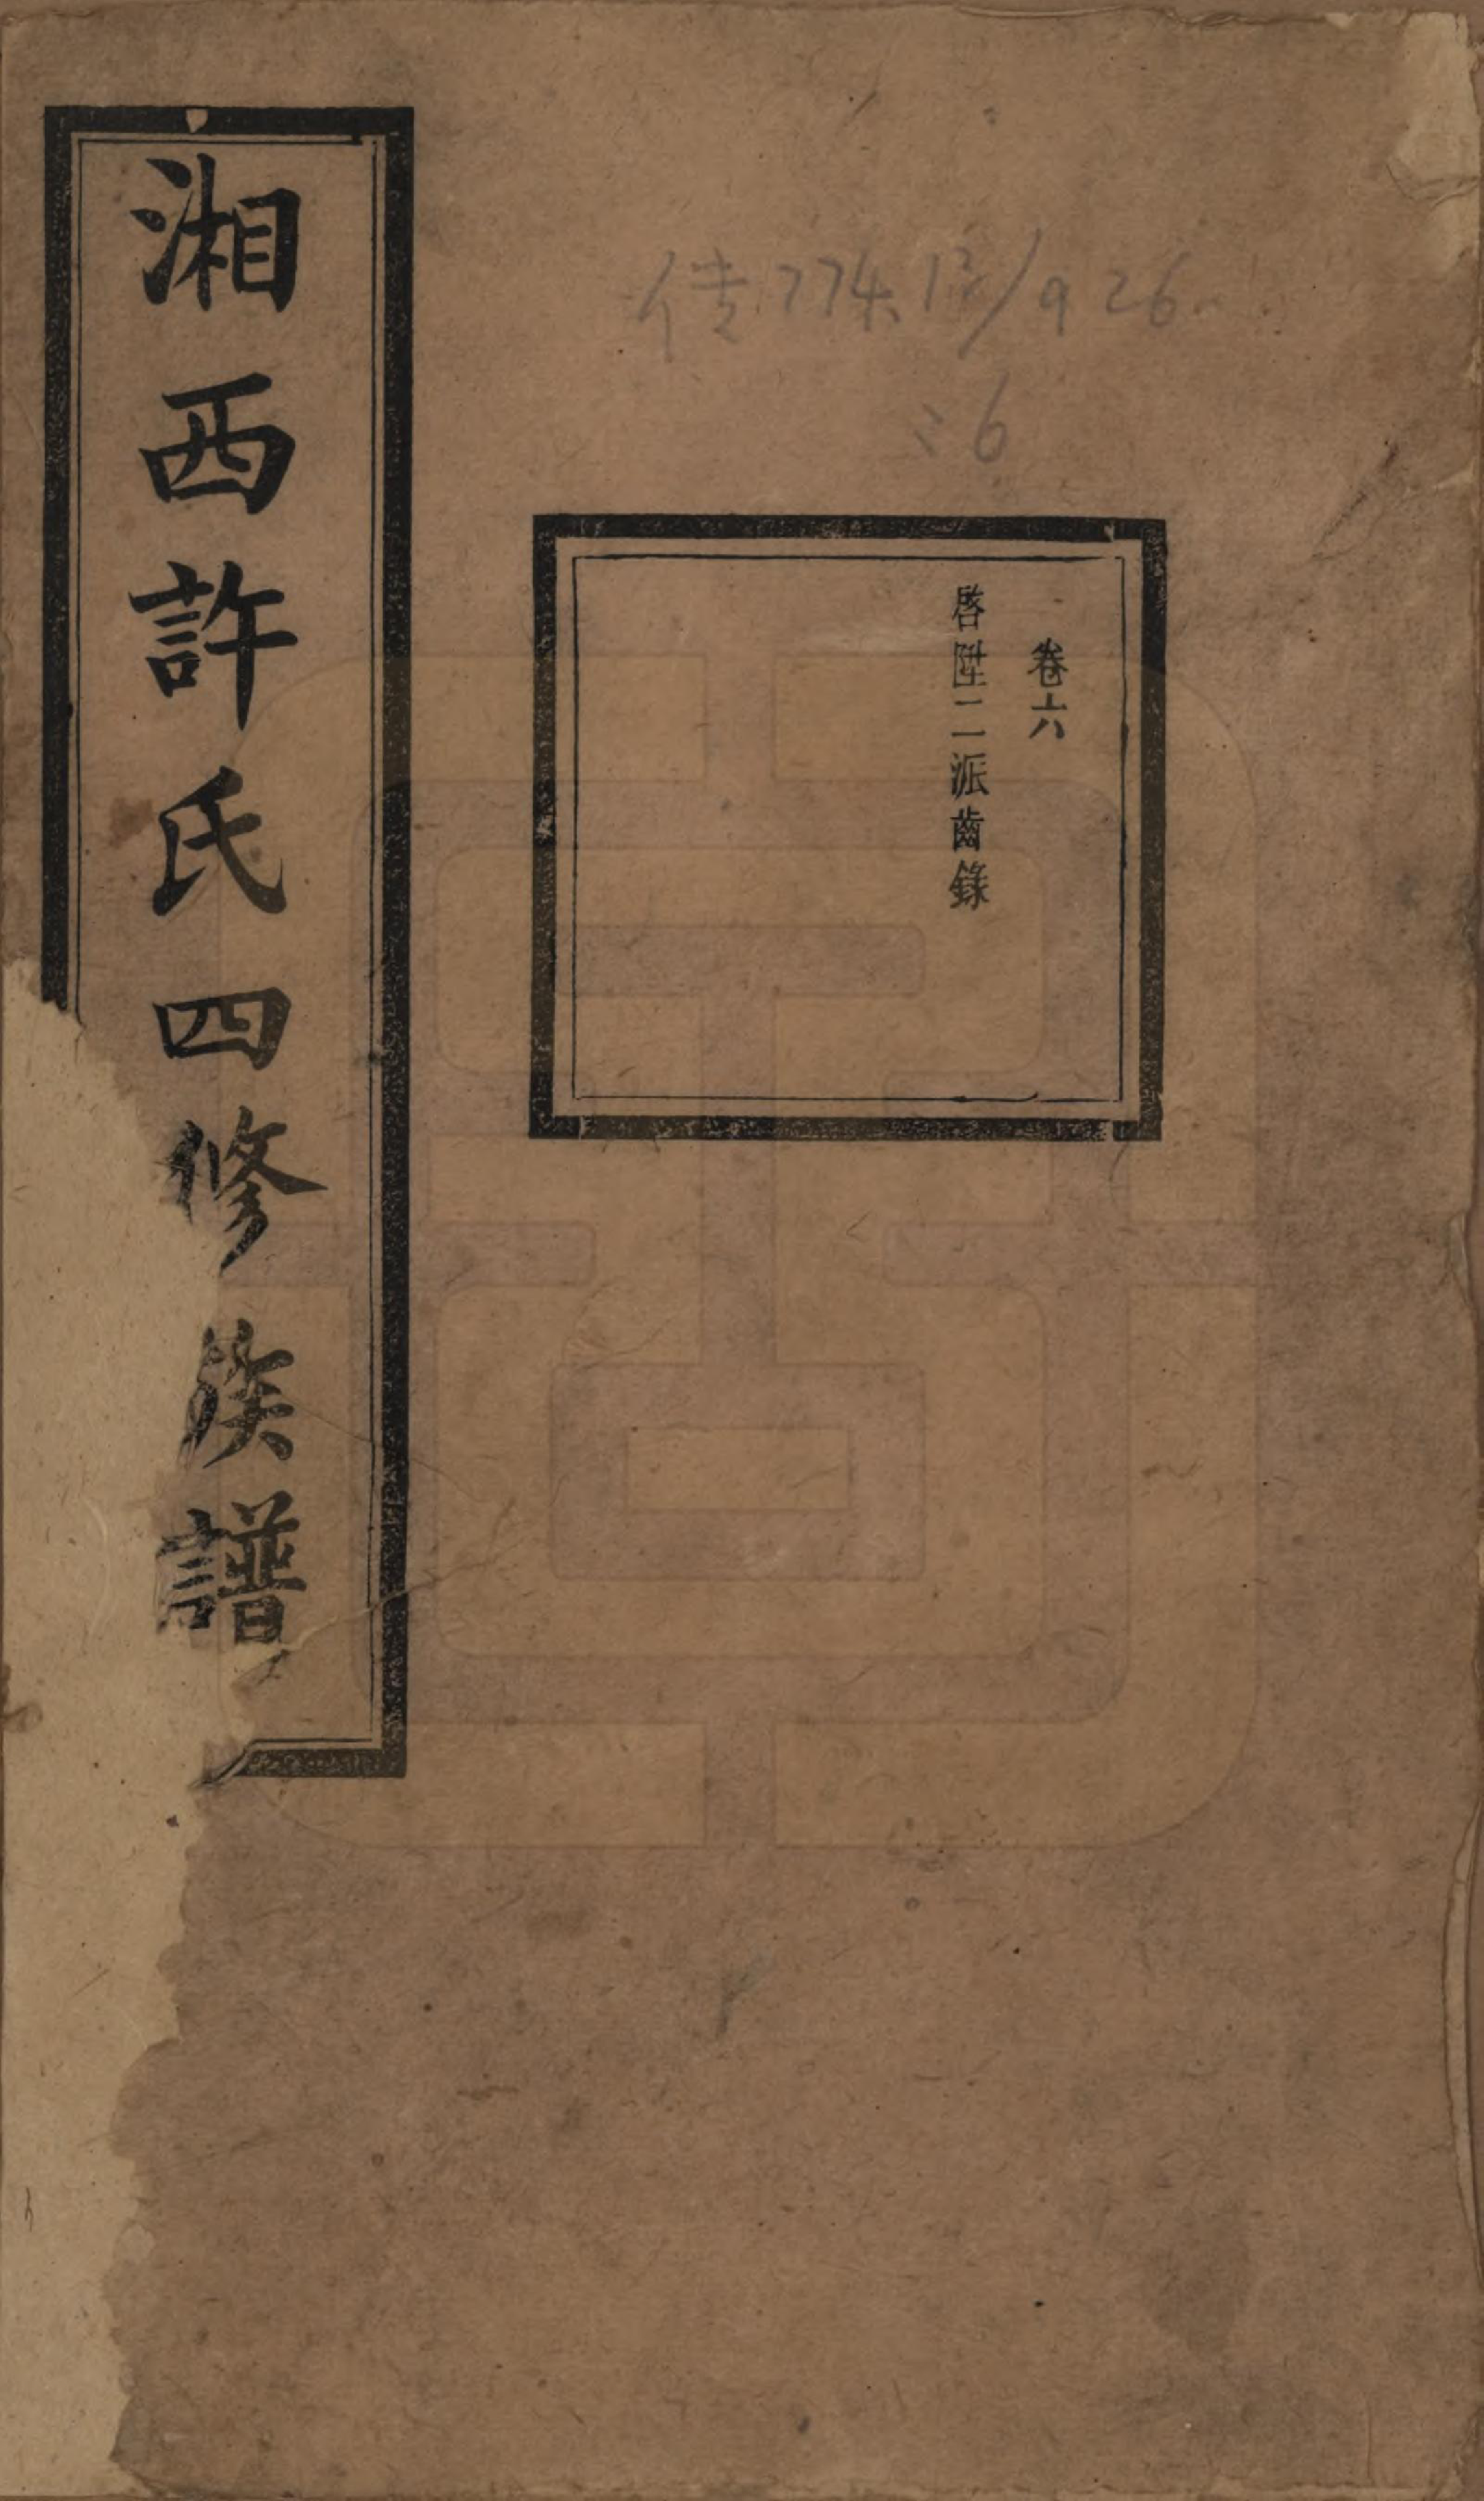 湘西許氏四修族譜
卷六
啓陞二派齒錄
传774.17/926
:6